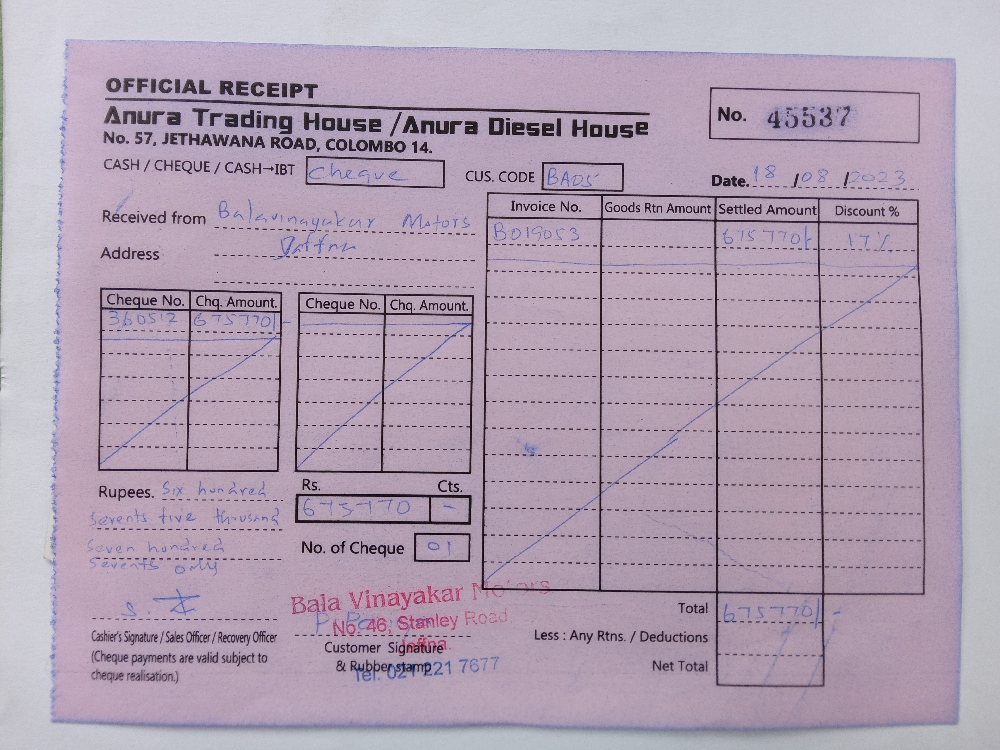 OFFICIAL RECEIPT
Anura Trading House /Anura Diesel House
No. 57, JETHAWANA ROAD, COLOMBO 14.
No. 45537
CASH / CHEQUE / CASH→IBT Cheque
CUS. CODE BA05
Date. 18 /08 /2023
Received from Balavinayakar Motors
Address Jaffna
Invoice No. Goods Rtn Amount Settled Amount Discount %
B019053 675770/- 17%
Cheque No. Chq. Amount.
360517 675770/-
Cheque No. Chq. Amount.
Rupees. Six hundred
Sevents five thousand
Seven hundred
Sevents only
Rs. Cts.
675770 -
No. of Cheque 01
Cashier's Signature / Sales Officer / Recovery Officer
(Cheque payments are valid subject to
cheque realisation.)
Bala Vinayakar Motors
No. 46, Stanley Road,
Jaffna.
Tel: 021 221 7677
Customer Signature
& Rubber stamp
Total 675770/-
Less : Any Rtns. / Deductions
Net Total